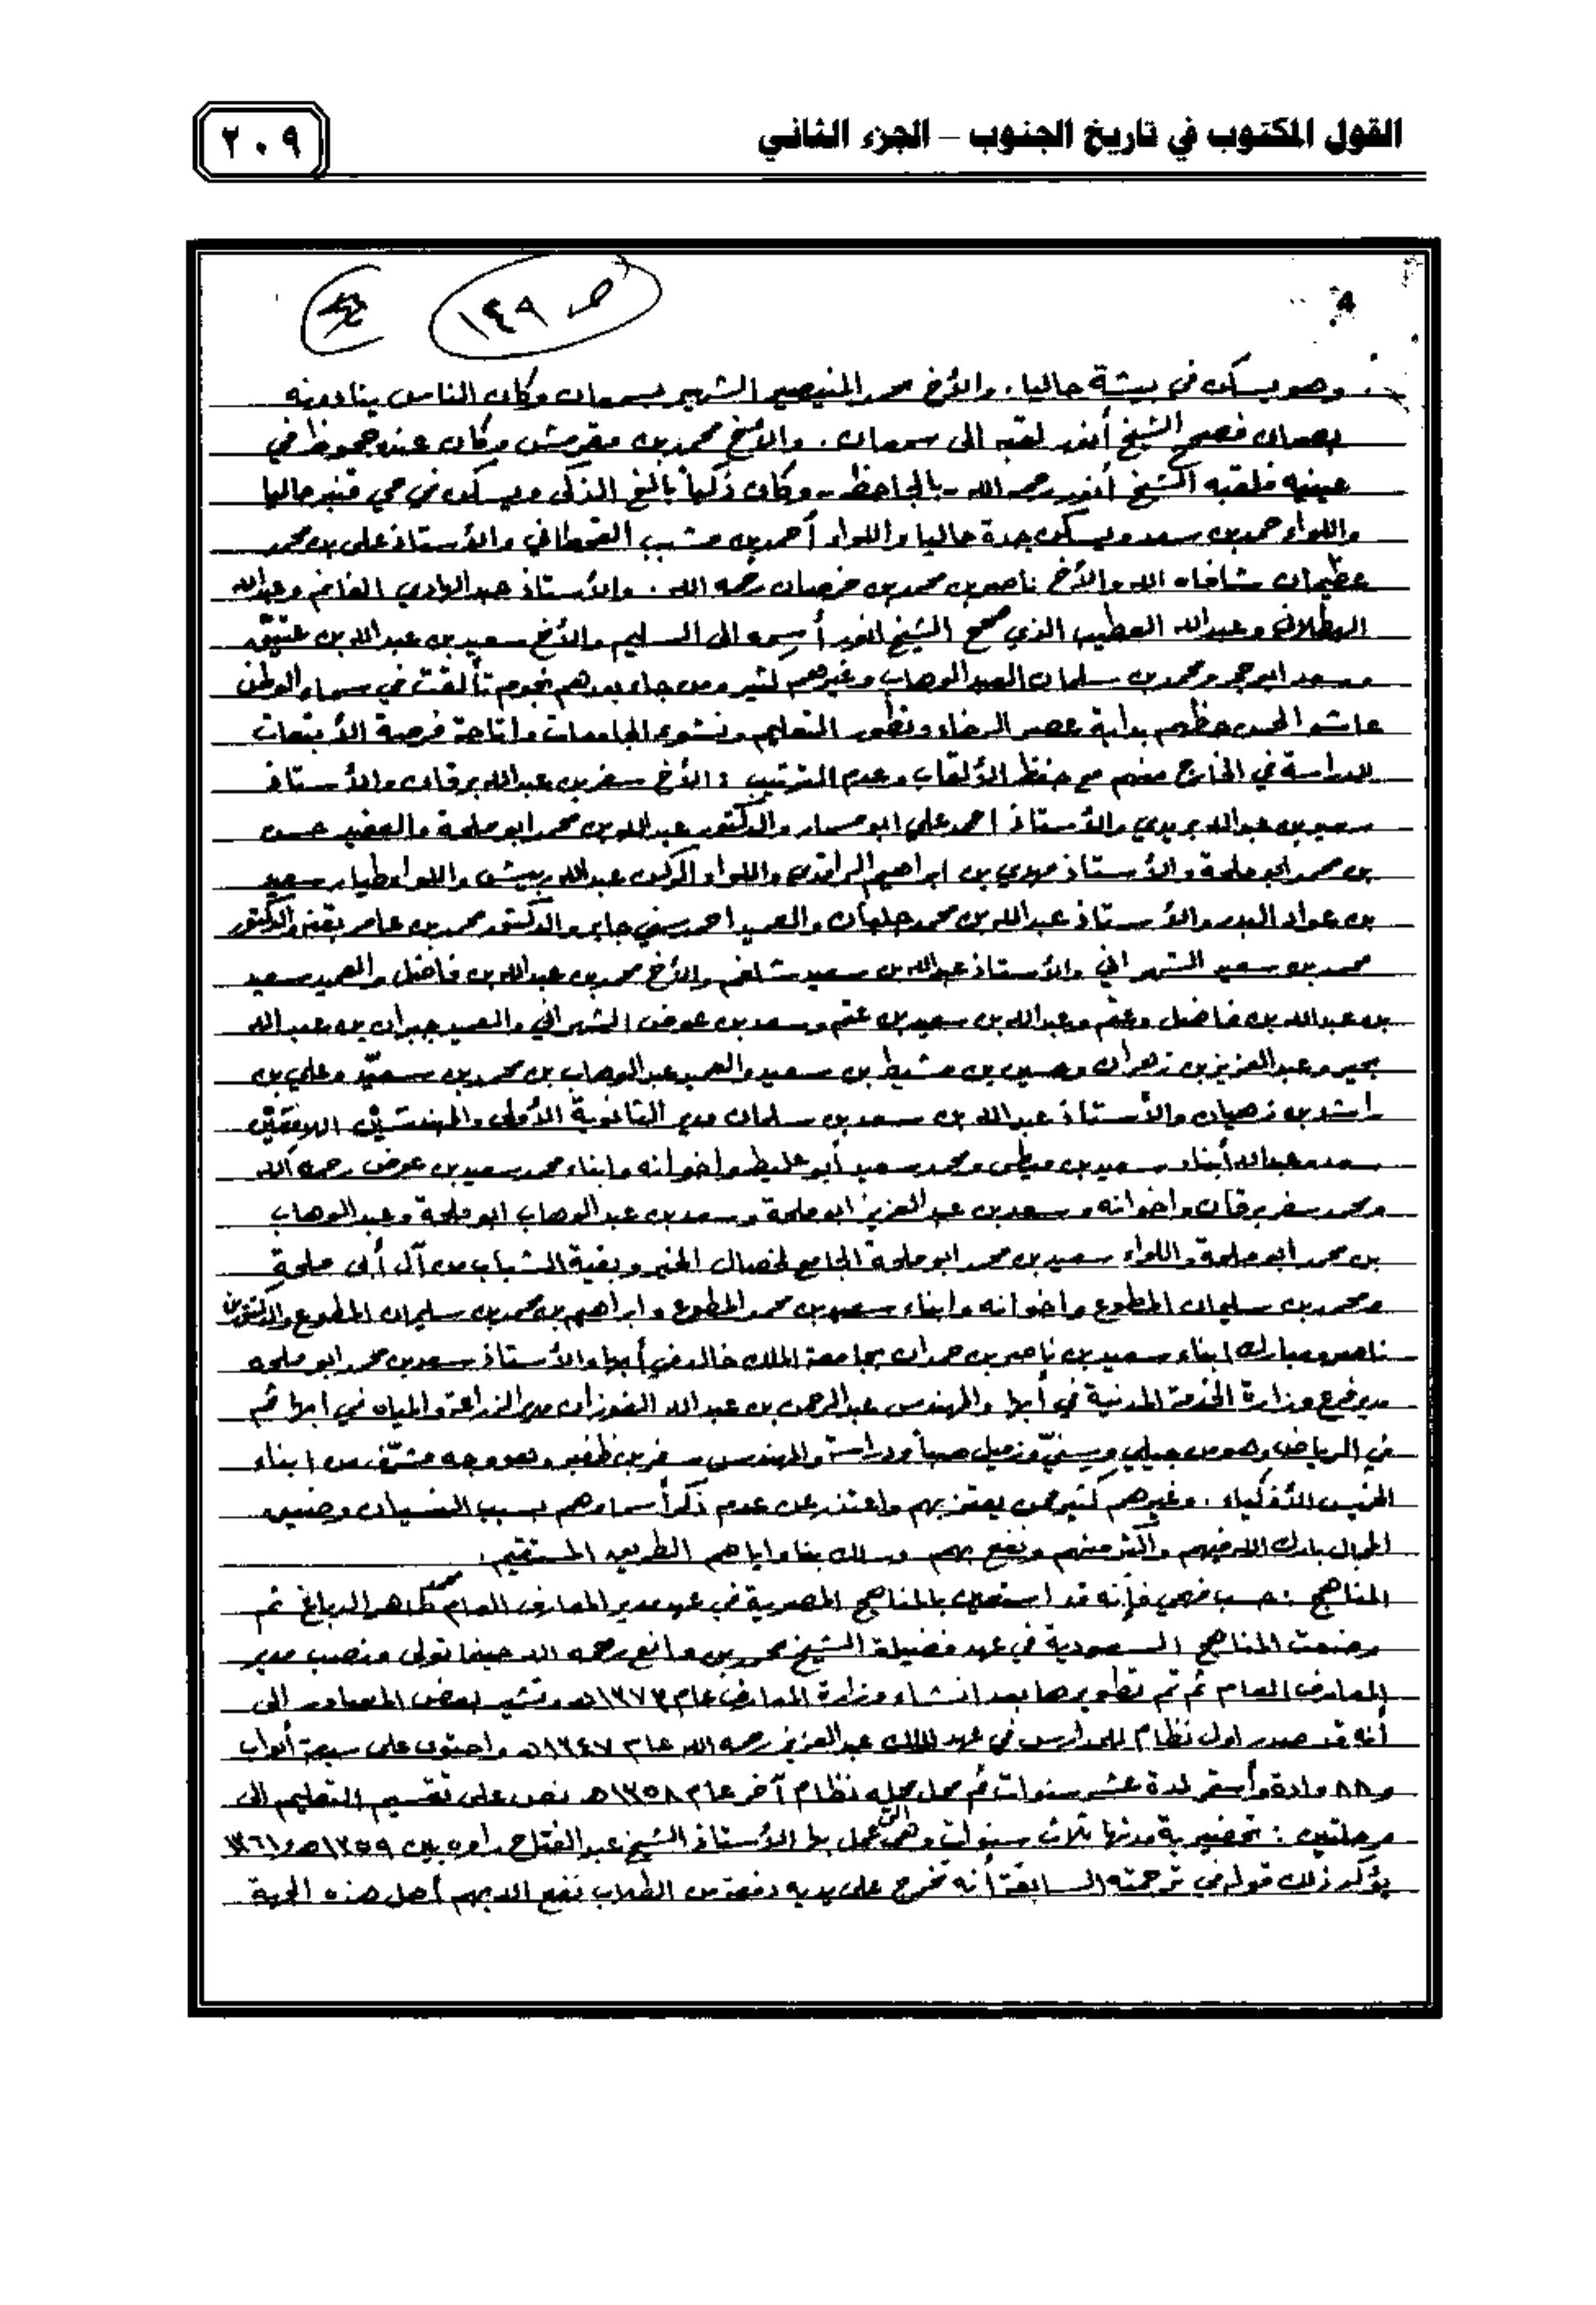 القول المكتوب في تاريخ الجنوب – الجزء الثاني
٢٠٩
ص ١٤٩
4
وهو يسكن في بيشة حاليا. والأخ محمد المنيصير الشهير بسمعان وكان الناس ينادونه
بصمان فصحح الشيخ أنور لقبه الى سمعان. والأخ محمد بن مقرمش وكان عنده جحوظ في
عينيه فلقبه الشيخ أنور رحمه الله - بالجاحظ - وكان ذكياً بالغ الذكى ويسكن في حي قنبر حاليا
واللواء حمد بن سعد ويسكن جدة حاليا واللواء أحمد بن مشبب القحطاني والأستاذ علي بن محمد
عظيمان شافاه الله والأخ ناصر بن محمد بن خرصان رحمه الله. والأستاذ عبدالهادي الغانم وعبدالله
الهطلاني وعبدالله العطيب الذي صحح الشيخ انور أسمه الى السليم والأخ سعيد بن عبدالله بن عتيق
وسعد ابوحجر ومحمد بن سلمان العبدالوهاب وغيرهم كثير ومن جاء بعدهم نجوم تألقت في سماء الوطن
عاشوا لحسن حظهم بداية عصر الرخاء وتطور التعليم ونشوء الجامعات واتاحة فرصة الأبتعاث
للدراسة في الخارج منهم مع حفظ الألقاب وعدم الترتيب : الأخ سفر بن عبدالله برقان والأستاذ
سعيد بن عبدالله بريدي والأستاذ احمد علي ابو مسمار والدكتور عبدالله بن محمد ابو ملحة والعقيد حسن
بن محمد ابو ملحة والأستاذ مهدي بن ابراهيم الراقدي واللواء الركن عبدالله ربيش واللواء طيار سعيد
بن عواد البدر والأستاذ عبدالله بن محمد جلبان والعميد احمد سفر جابر والدكتور محمد بن عامر بقنه والدكتور
محمد بن سعيد الشهراني والأستاذ عبدالله بن سعيد شلغم والأخ محمد بن عبدالله بن فاضل والعميد سعيد
بن عبدالله بن فاضل وعثم وعبدالله بن سعيد بن عثم وسعد بن عوض الشهراني والعميد جبران بن عبدالله
بجير وعبدالعزيز بن زهران وحسين بن مشيط بن سعيد والعميد عبدالوهاب بن محمد بن سعيّد وعلي بن
راشد بن زهيان والأستاذ عبدالله بن سعد بن سلمان مدير الثانوية الأولى والمهندسَيْن اللامعَيْن
سعد وعبدالله أبناء سعيد بن ميطي ومحمد سعيد أبو غليظ واخوانه وابناء محمد سعيد بن عوض رحمه الله
ومحمد سفر برقان واخوانه وسعد بن عبدالعزيز ابو ملحة وسعد بن عبدالوهاب ابو ملحة وعبدالوهاب
بن محمد ابو ملحة واللواء سعيد بن محمد ابو ملحة الجامع لخصال الخير وبقية الشباب من آل أبي ملحة
ومحمد بن سليمان المطوع واخوانه وابناء سعيد بن محمد المطوع وابراهيم بن محمد بن سليمان المطوع والدكتوران
ناصر ومبارك ابناء سعيد بن ناصر بن حمدان بجامعة الملك خالد في أبها والأستاذ سعد بن محمد ابو ملحه
مدير فرع وزارة الخدمة المدنية في أبها والمهندس عبدالرحمن بن عبدالله الفوزان مدير الزراعة والمياه في ابها ثم
في الرياض وهو من جيلي وسِنيّ وزميل صبا ودراسة والمهندس سفر بن ظفير وهو وجه مشرّف من ابناء
الخميس الأذكياء. وغيرهم كثير ممن يعتز بهم واعتذر عن عدم ذكر أسماءهم بسبب النسيان وضيق
المجال بارك الله فيهم وأكثر منهم ونفع بهم وسلك بنا واياهم الطريق المستقيم.
المناهج : حسب فهمي فإنه قد استعين بالمناهج المصرية في عهد مدير المعارف العام محمد طاهر الدباغ ثم
وضعت المناهج السعودية في عهد فضيلة الشيخ محمد بن مانع رحمه الله حينما تولى منصب مدير
المعارف العام ثم تم تطويرها بعد انشاء وزارة المعارف عام ١٣٧٣هـ وتشير بعض المصادر الى
أنه قد صدر اول نظام للمدارس في عهد الملك عبدالعزيز رحمه الله عام ١٣٤٧هـ واحتوى على سبعة أبواب
و٨٨ مادة وأستمر لمدة عشر سنوات ثم حل محله نظام آخر عام ١٣٥٨هـ نص على تقسيم التعليم الى
مرحلتين : تحضيرية مدتها ثلاث سنوات وهي التي عمل بها الأستاذ الشيخ عبدالفتاح راوه بين ١٣٥٩هـ و١٣٦١
يؤكد ذلك قوله في ترجمته السابقة أنه تخرج على يديه دفعة من الطلاب نفع الله بهم أهل هذه الجهة